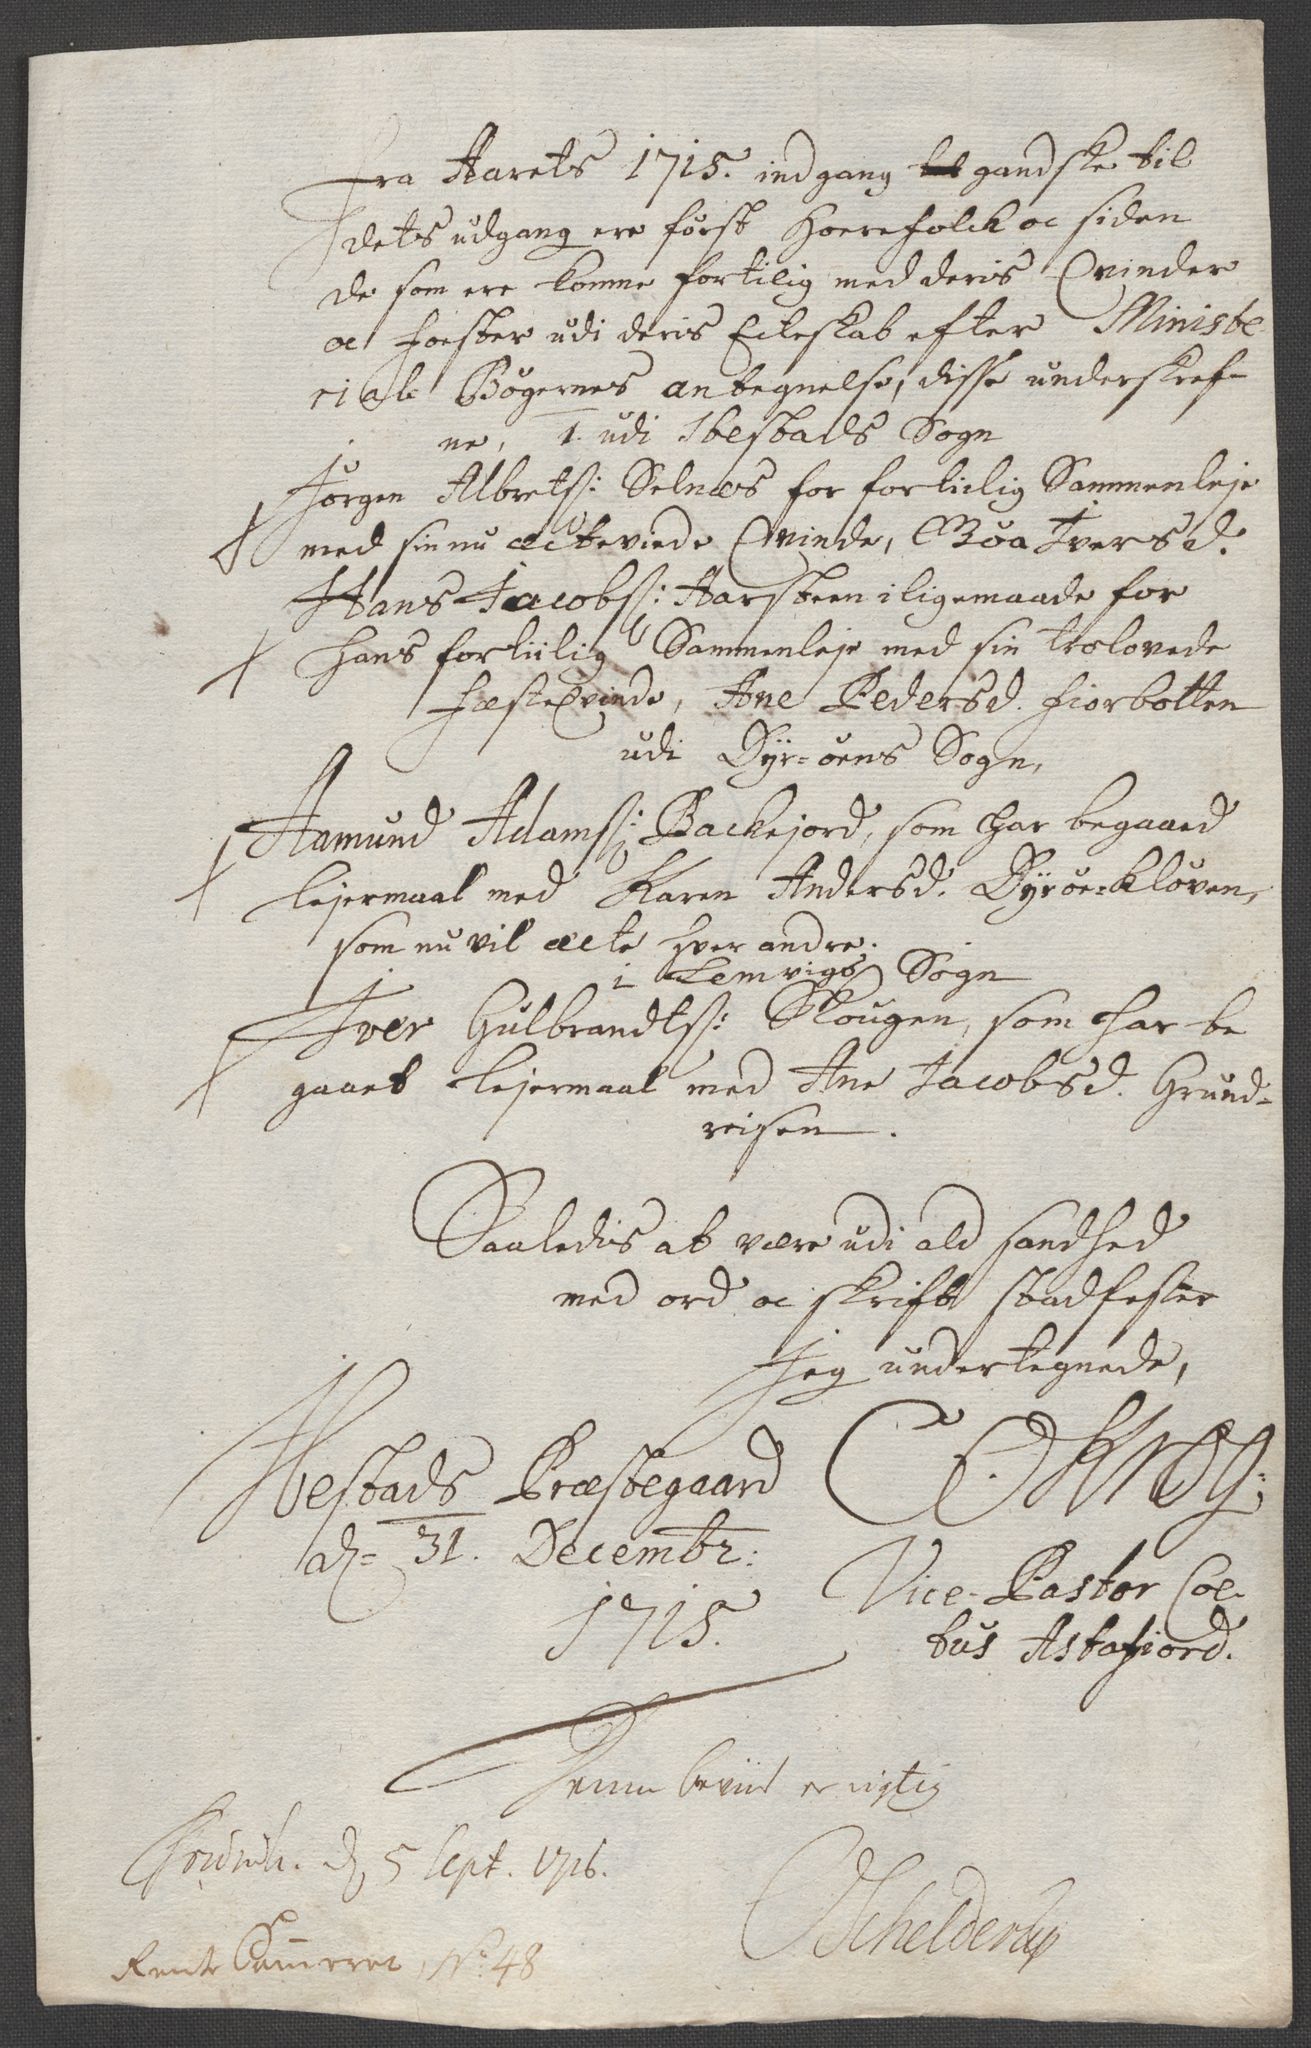 Fra Aarets 1715. indgang gandske til
dets udgang ere først Hoerefolck oc siden
de som ere komne fortilig med deris Qvinder
oc Foester udi deris Ecteskab efter Ministe-
rial Bögernes antegnelse, disse underskref-
ne, 1. udi Ibestads Sogn
Jörgen Albrets: Selnæs for fortilig Sammenleje
med sin nu ecteviede Qvinde, Iversd.
Hans Jacobs: Aarsteen iligemaade for
hans fortiilig Sammenleje med sin trolovede
FæsteQvinde, Ane Pedersd. Fiorbotten
udi Dÿr-öens Sogn,
Aamund Adams: Backejord, som har begaaed
lejermaal med Karen Andersd. Dÿröe-Klöven,
som nu vil ecte hver andre.
i Lemvigs Sogn
Iver Gulbrandts: Skougen, som har be
gaaet lejermaal med Ane Jacobsd. Grund-
reisen.
Saaledis at være udi ald sandhed
med ord oc skrift stadfester
Jeg undertegnede,
Ibestads Præstegaard
dn= 31. Decembr:
1715.
Vice-Pastor Coe-
tus Astafiord.
Denne beviis er rigtig
d. 5 Sept. 1716.
Schelderup
Rente Cammeret, No: 48